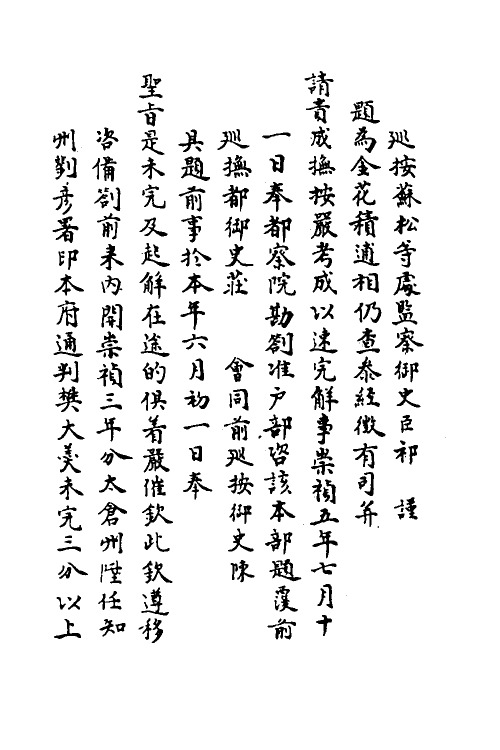 巡按蘇松等處監察御史臣祁　謹
題為金花積逋相仍查叅經徵有司并
請責成撫按嚴考成以速完解事崇禎五年七月十
一日奉都察院勘劄准户部咨該本部題覆前
巡撫都御史莊　會同前巡按御史陳
具題前事於本年六月初一日奉
聖旨是未完及起解在途的俱着嚴催欽此欽遵移
咨備劄前来内開崇禎三年分太倉州陞任知
州劉彦署印本府通判樊大美未完三分以上